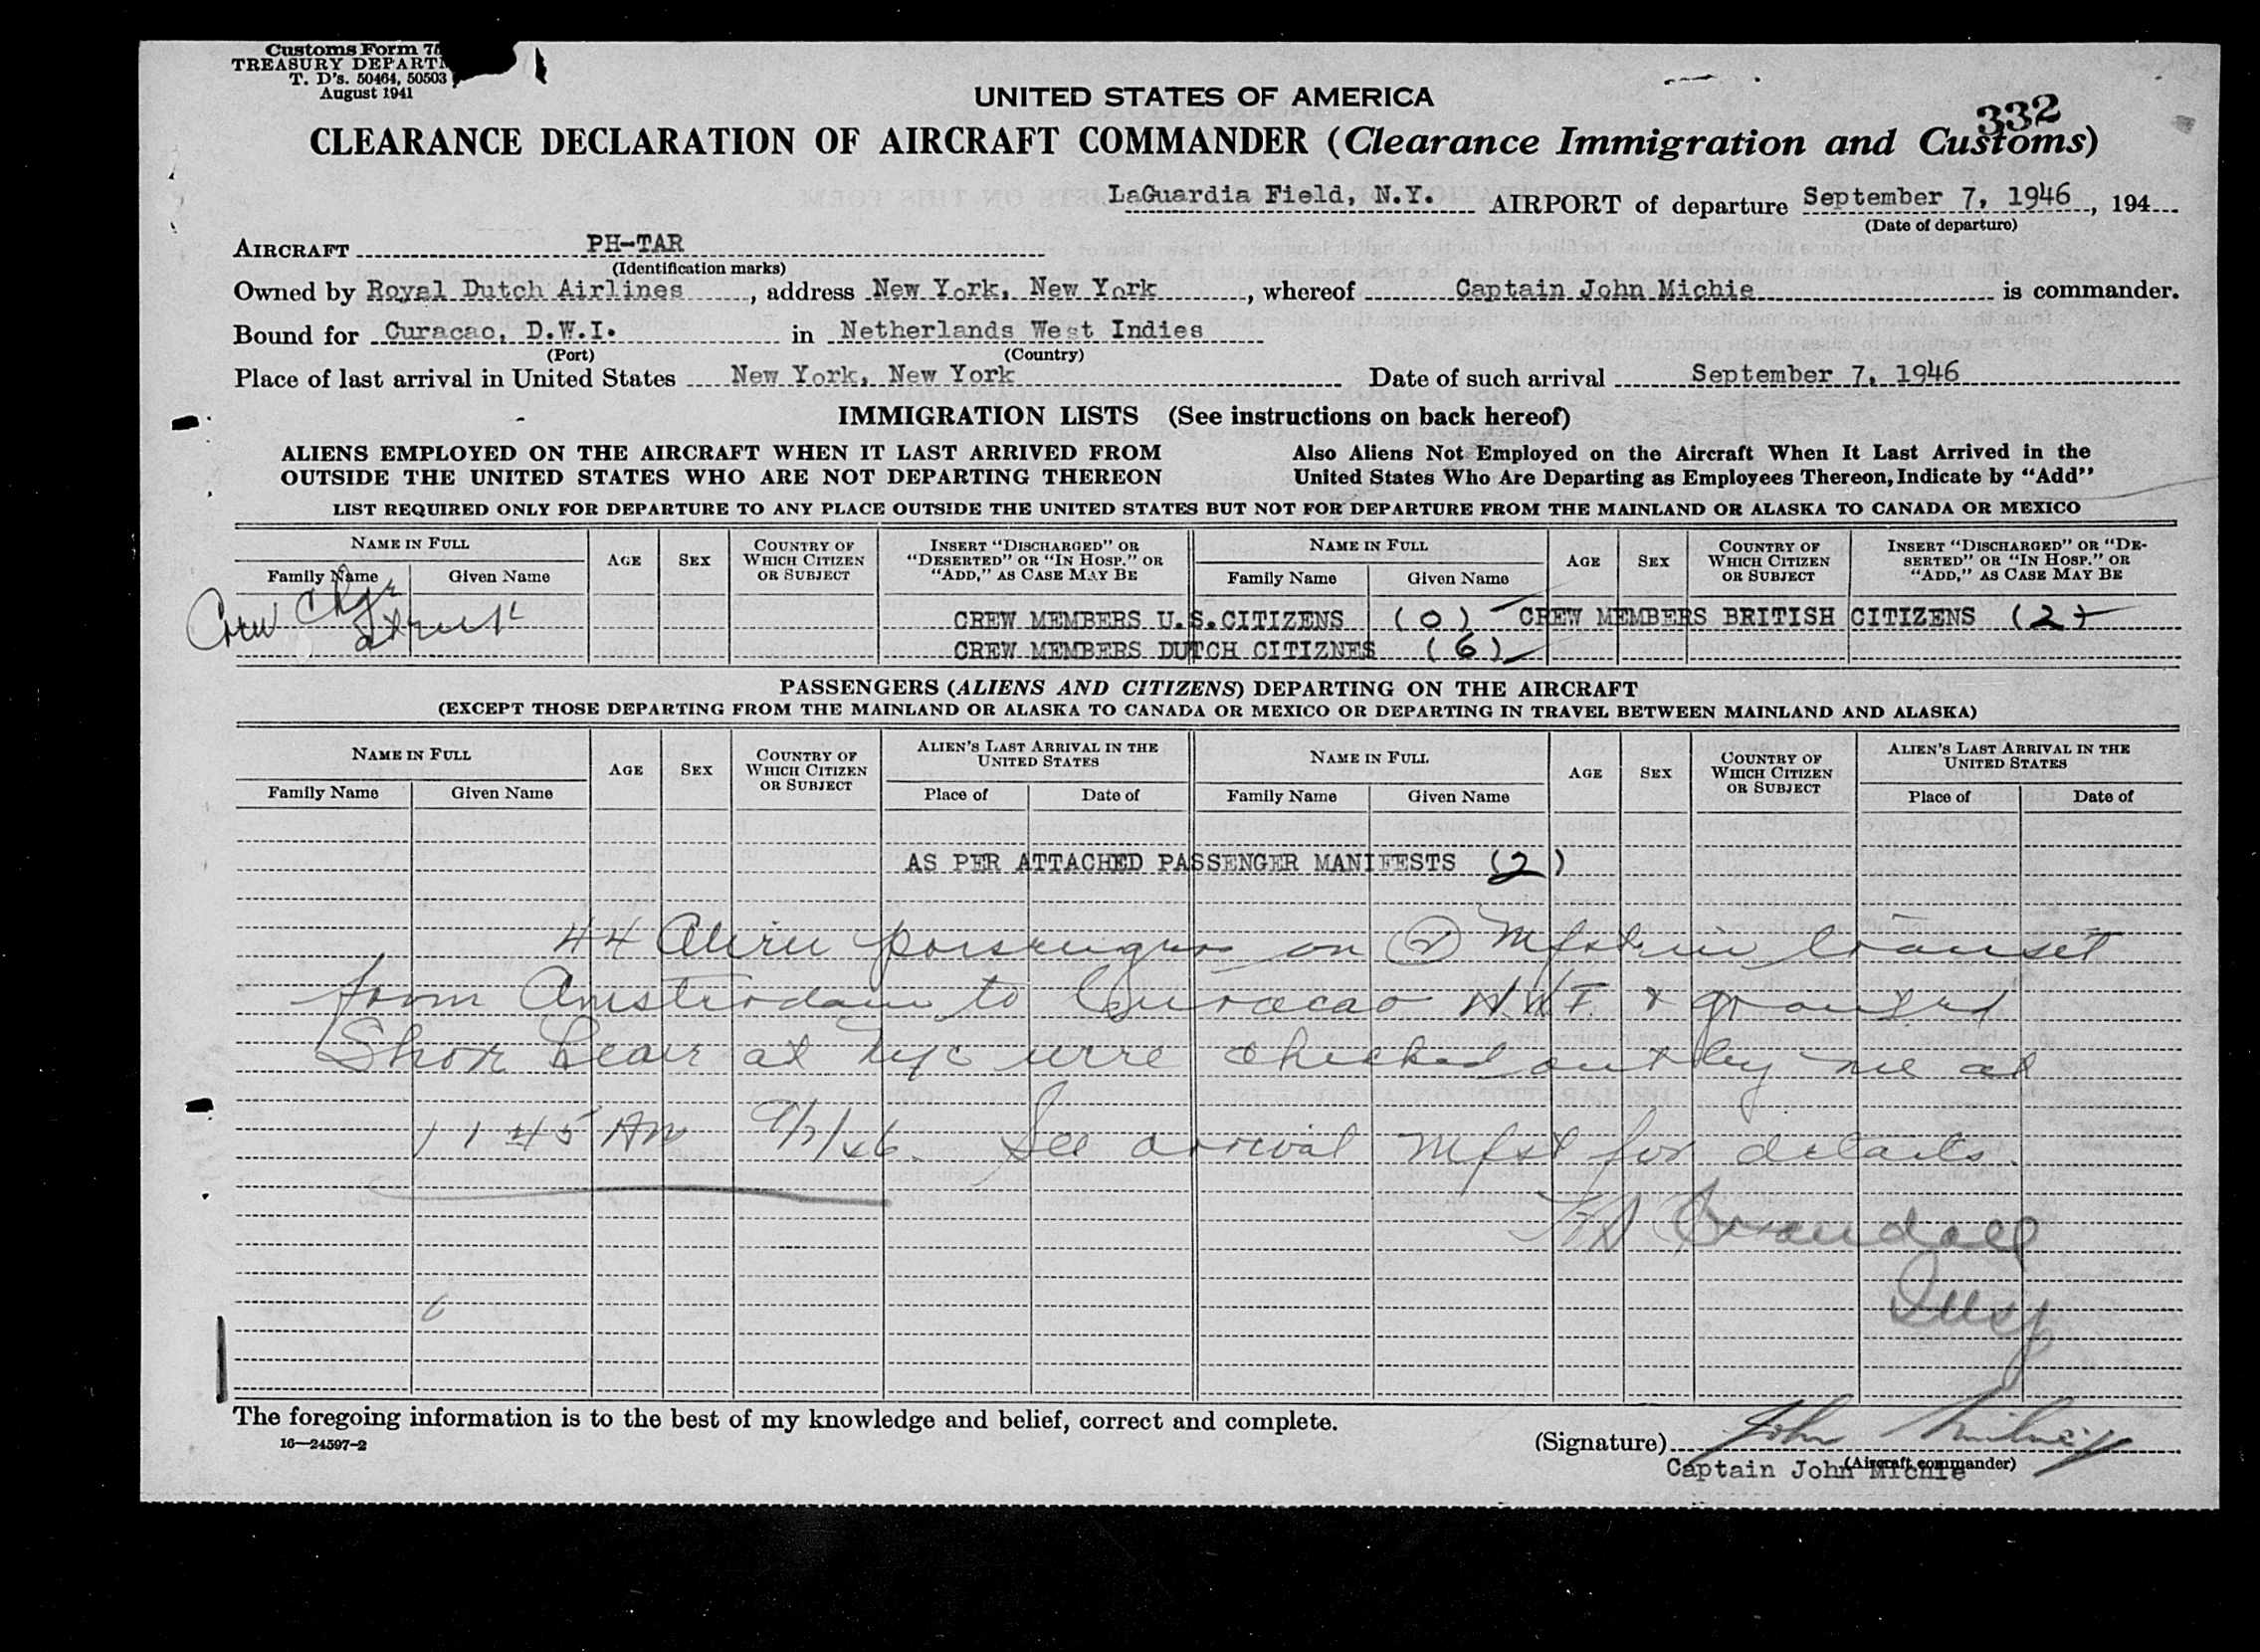 Customs Form 75
TREASURY DEPARTM
T. D's. 50464, 50503
August 1941
UNITED STATES OF AMERICA
332
CLEARANCE DECLARATION OF AIRCRAFT COMMANDER (Clearance Immigration and Customs)
LaGuardia Field, N.Y. AIRPORT of departure September 7, 1946, 194
(Date of departure)
AIRCRAFT PH-TAR
(Identification marks)
Owned by Royal Dutch Airlines, address New York, New York, whereof Captain John Michie is commander.
Bound for Curacao, D.W.I. in Netherlands West Indies
(Port) (Country)
Place of last arrival in United States New York, New York Date of such arrival September 7, 1946
IMMIGRATION LISTS (See instructions on back hereof)
ALIENS EMPLOYED ON THE AIRCRAFT WHEN IT LAST ARRIVED FROM OUTSIDE THE UNITED STATES WHO ARE NOT DEPARTING THEREON
Also Aliens Not Employed on the Aircraft When It Last Arrived in the United States Who Are Departing as Employees Thereon, Indicate by "Add"
LIST REQUIRED ONLY FOR DEPARTURE TO ANY PLACE OUTSIDE THE UNITED STATES BUT NOT FOR DEPARTURE FROM THE MAINLAND OR ALASKA TO CANADA OR MEXICO
NAME IN FULL AGE SEX COUNTRY OF WHICH CITIZEN OR SUBJECT INSERT "DISCHARGED" OR "DESERTED" OR "IN HOSP." OR "ADD," AS CASE MAY BE NAME IN FULL AGE SEX COUNTRY OF WHICH CITIZEN OR SUBJECT INSERT "DISCHARGED" OR "DESERTED" OR "IN HOSP." OR "ADD," AS CASE MAY BE
Family Name Given Name Family Name Given Name
Crew Chgr
CREW MEMBERS U.S.CITIZENS (0) CREW MEMBERS BRITISH CITIZENS (2)
CREW MEMBERS DUTCH CITIZNES (6)
PASSENGERS (ALIENS AND CITIZENS) DEPARTING ON THE AIRCRAFT
(EXCEPT THOSE DEPARTING FROM THE MAINLAND OR ALASKA TO CANADA OR MEXICO OR DEPARTING IN TRAVEL BETWEEN MAINLAND AND ALASKA)
NAME IN FULL AGE SEX COUNTRY OF WHICH CITIZEN OR SUBJECT ALIEN'S LAST ARRIVAL IN THE UNITED STATES NAME IN FULL AGE SEX COUNTRY OF WHICH CITIZEN OR SUBJECT ALIEN'S LAST ARRIVAL IN THE UNITED STATES
Family Name Given Name Place of Date of Family Name Given Name Place of Date of
AS PER ATTACHED PASSENGER MANIFESTS (2)
44 Alien passengers on (2) Mfst in transit
from Amsterdam to Curacao N.W.I. & granted
Shore Leave at NYC were checked out by me at
11 45 AM 9/7/46. See arrival mfst for details.
Crandall
Insp
The foregoing information is to the best of my knowledge and belief, correct and complete.
16—24597-2
(Signature) John Michie
(Aircraft commander)
Captain John Michie